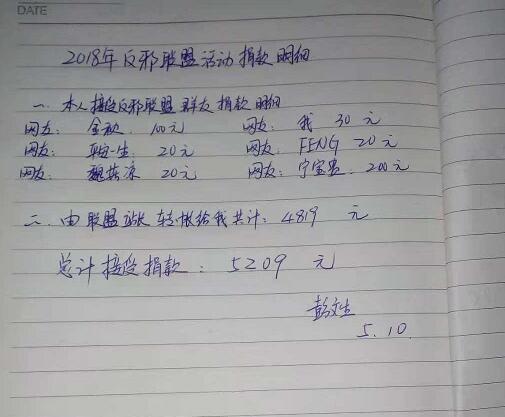 DATE
2018年反邪联盟活动捐款明细
一. 本人接受反邪联盟群友捐款明细
网友: 金秋 100元 网友: 我 30元
网友: 一生 20元 网友: FENG 20元
网友: 20元 网友: 宁宝贵. 200元
二. 由联盟站长转帐给我共计: 4819 元
总计接受捐款: 5209 元
彭文生
5.10.